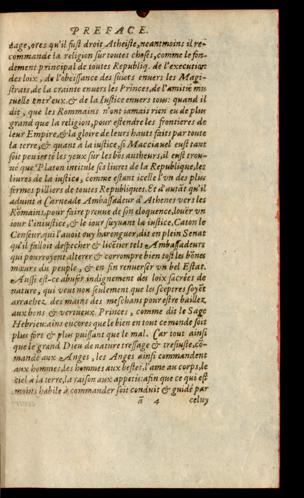 PREFACE.
sage, ores qu'il fust droit Atheiste, neantmoins il re-
commande la religion sur toutes choses, comme le fon-
dement principal de toutes Republiq. de l'execution
des loix, de l'obeissance des suiets enuers les Magi-
strats, de la crainte enuers les Princes, de l'amitié mu
tuelle entr'eux, & de la Iustice enuers tous: quand il
dit, que les Rommains n'ont iamais rien eu de plus
grand que la religion, pour estendre les frontieres de
leur Empire, & la gloire de leurs hauts faits par toute
la terre, & quant à la iustice, si Macciauel eust tant
soit peu ietté les yeux sur les bõs autheurs, il eust trou-
ué que Platon intitule ses liures de la Republique, les
liures de la iustice, comme estant icelle l'vn des plus
firmes pilliers de toutes Republiques. Et d'autãt qu'il
aduint à Carneade Ambassadeur d'Athenes vers les
Rõmains, pour faire preuue de son eloquence, louër vn
iour l'iniustice, & le iour suyuant la iustice, Caton le
Censeur, qui l'auoit ouy haranguer, dit en plein Senat
qu'il failloit despecher & licētier tels Ambassadeurs
qui pourroyent alterer & corrompre bien tost les bõnes
mœurs du peuple, & en fin renuerser vn bel Estat.
Aussi est-ce abuser indignement des loix sacrées de
nature, qui veut non seulement que les sceptres soyẽt
arrachez des mains des meschans pour estre baillez
aux bons & vertueux Princes, comme dit le Sage
Hebrieu: ains encores que le bien en tout ce monde soit
plus fort & plus puissant que le mal. Car tout ainsi
que le grand Dieu de nature tressage & tresiuste, cõ-
mande aux Anges, les Anges ainsi commandent
aux hommes, les hommes aux bestes, l'ame au corps, le
ciel à la terre, la raison aux appetis: afin que ce qui est
moins habile à commander soit conduit & guidé par
ã 4 celuy